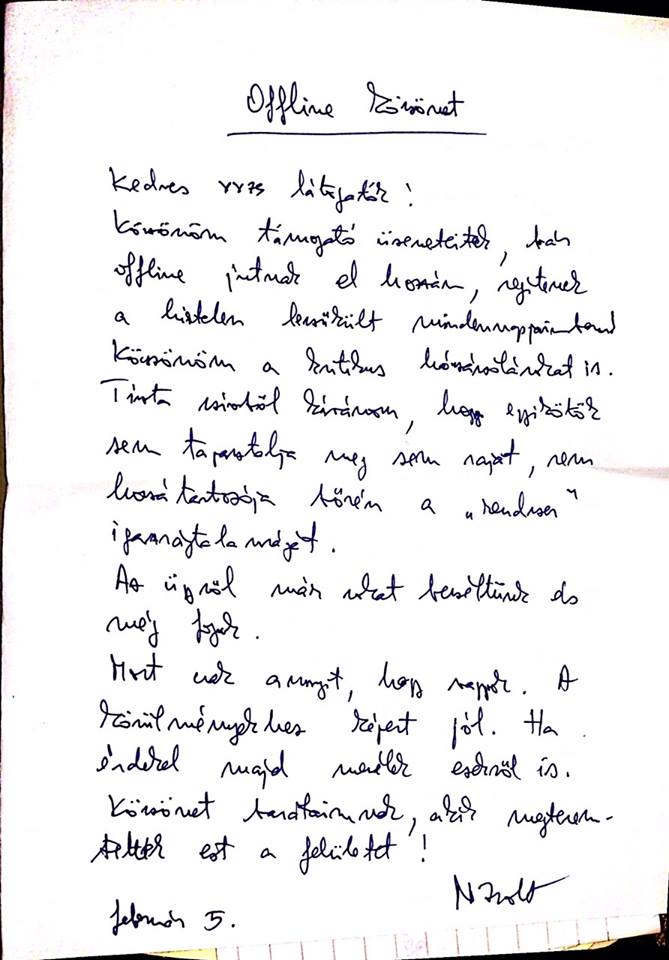 Offline köszönet
Kedves látogatók!
Köszönöm támogató üzeneteitek, bár
offline jutnak el hozzám, segítenek
a hirtelen beszűkült mindennapjaimban.
Köszönöm a kritikus hozzászólásokat is.
Tiszta szívből kívánom, hogy egyikőtök
sem tapasztalja meg sem saját, sem
hozzátartozója bőrén a „rendszer"
igazságtalanságát.
Az ügyről már sokat beszéltünk és
még fogok.
Most csak annyit, hogy vagyok. A
körülményekhez képest jól. Ha
érdekel majd mesélek ezekről is.
Köszönet barátaimnak, akik megterem-
tették ezt a felületet!
N Zsolt
február 5.